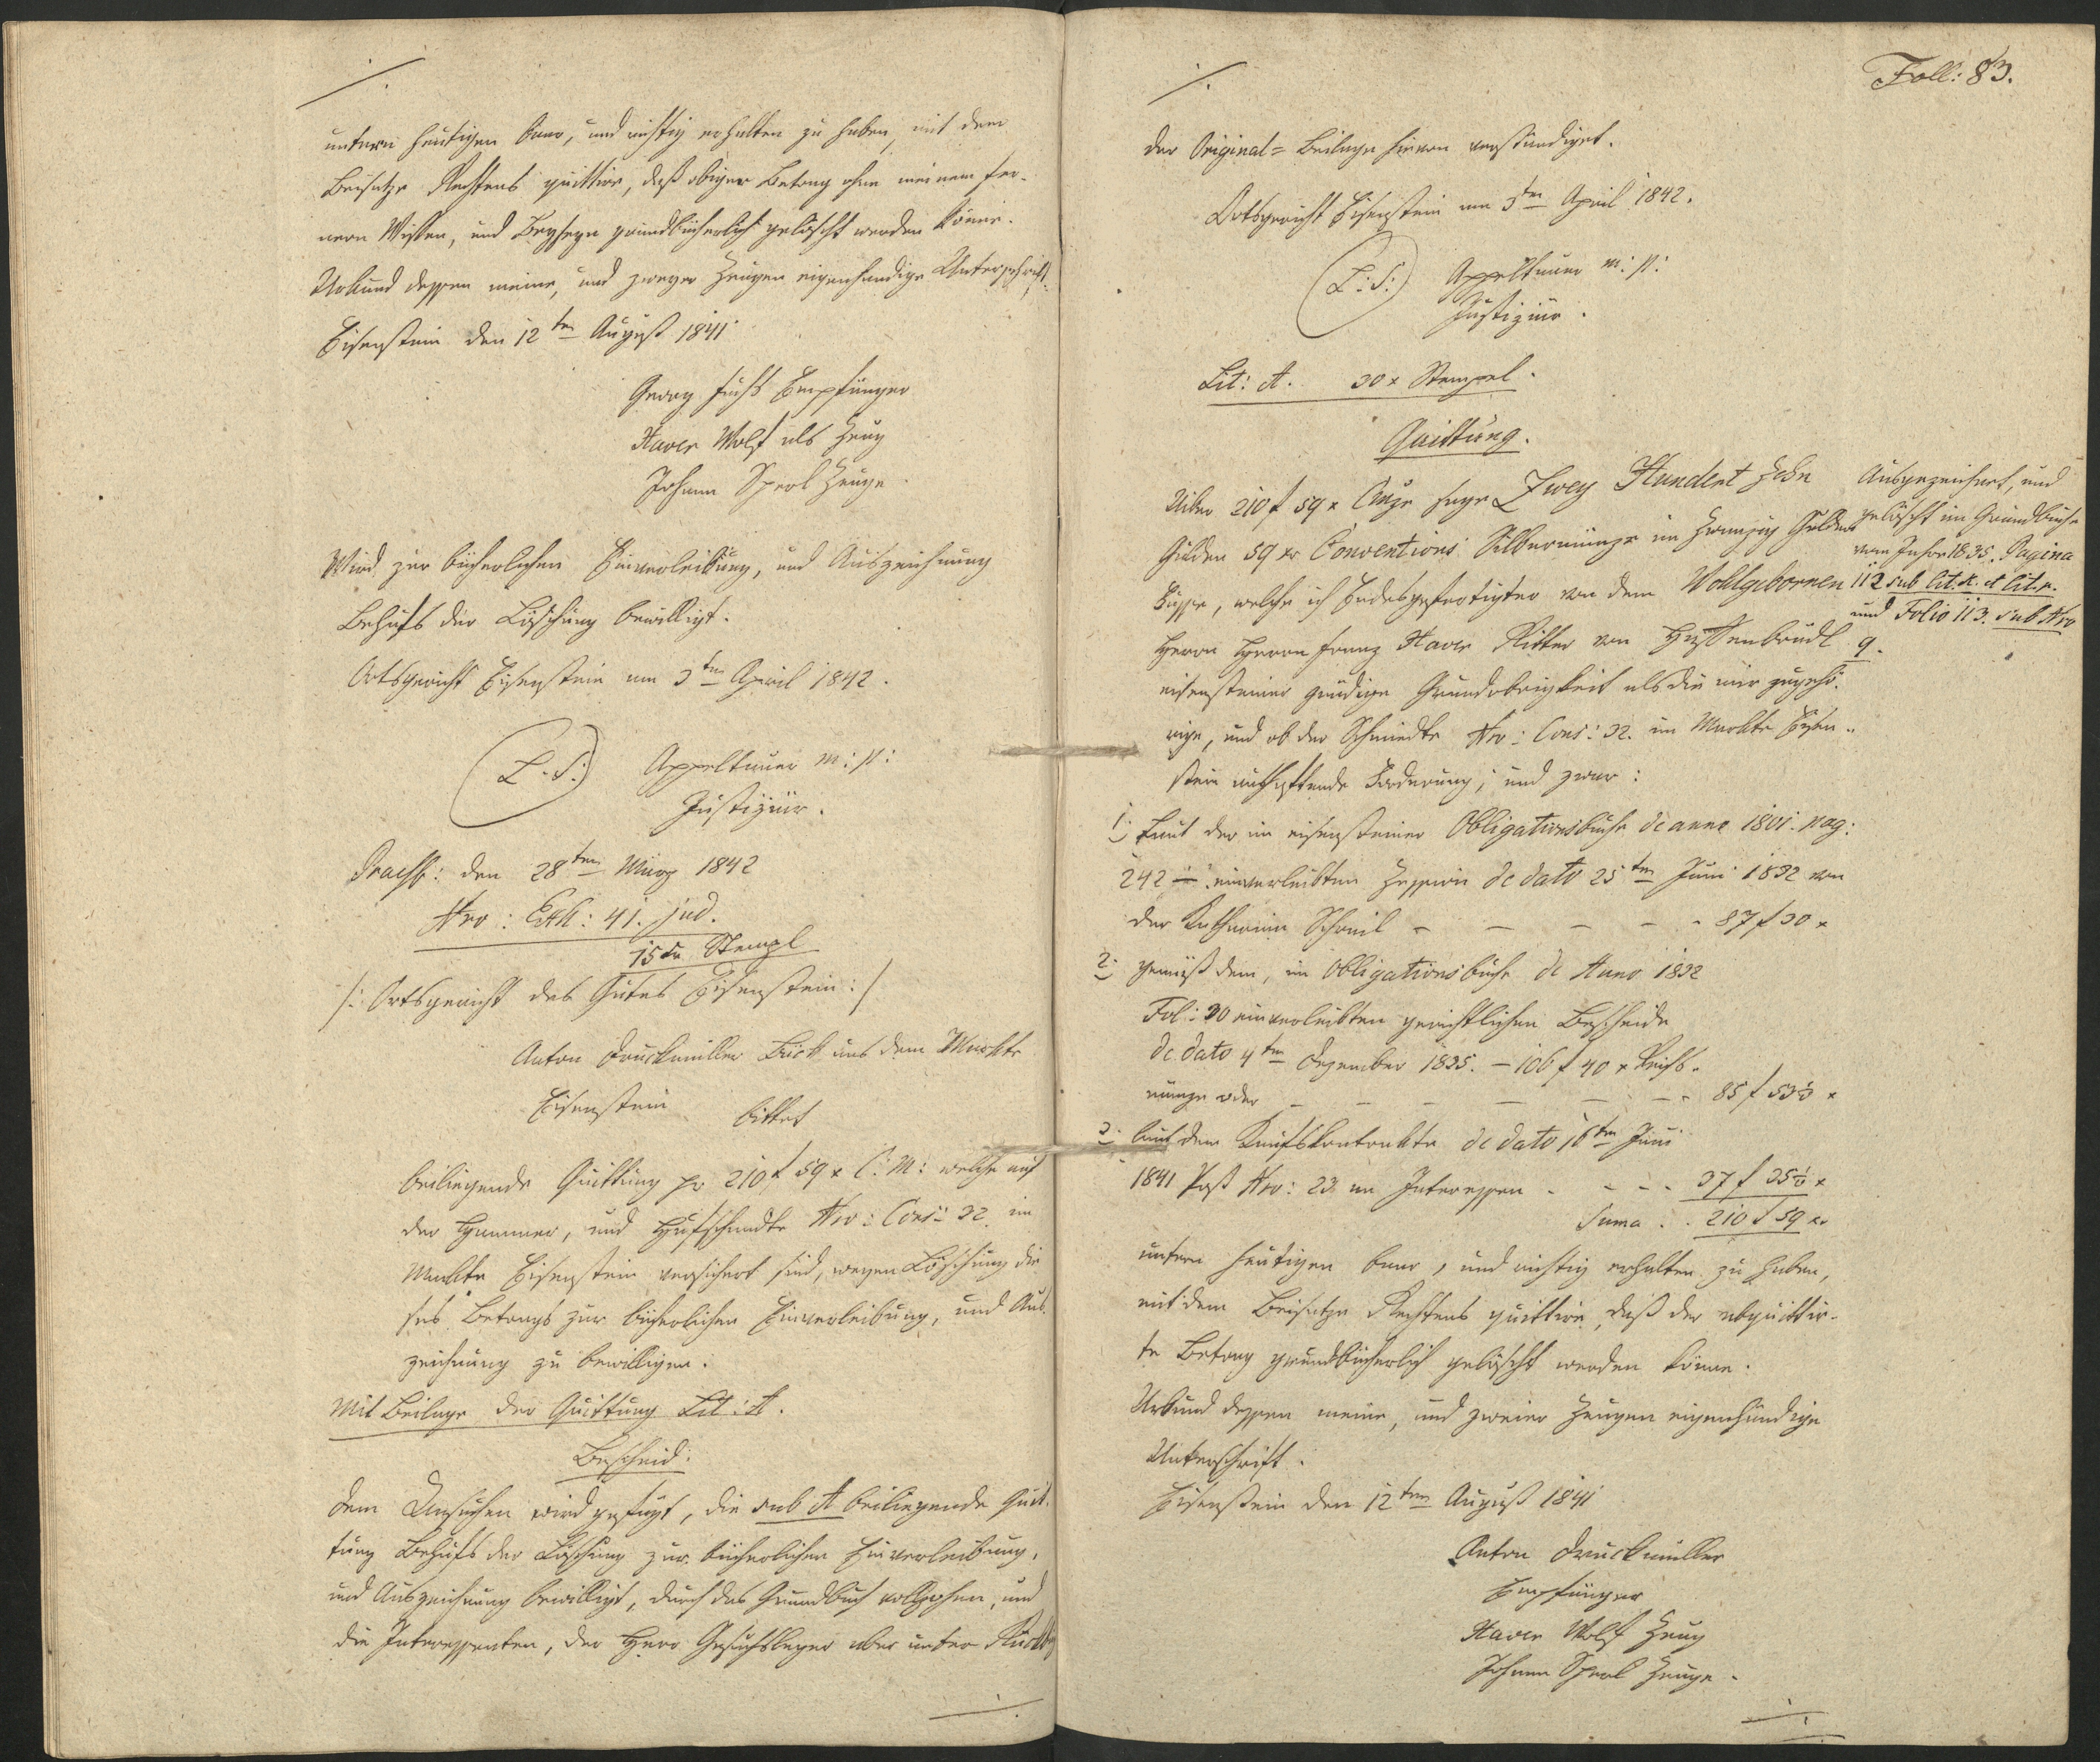 ./.
untern heutigen baar, und richtig erhalten zu haben, mit dem
Beisatze Rechtens quittire, daß obiger Betrag ohne meinem fer-
nern Wissen, und Beyseyn grundbücherlich gelöscht werden könne.
Urkund dessen meine, und zweyer Zeugen eigenhändige Unterschrift.
Eisenstein den 12ten August 1841
Georg Fuchs Empfänger
Xaver Wolf als Zeug
Johann Sperl Zeuge.
Wird zur bücherlichen Einverleibung, und Auszeichnung
Behufs der Löschung bewilligt.
Ortsgericht Eisenstein am 3ten April 1842.
(L. S:) Appeltauer m: p:
Justiziär.
Praes: den 28ten März 1842
Nro: Exh: 41. jud.
15 xr Stempl
/: Ortsgericht des Gutes Eisenstein :/
Anton Druckmüller Bürg aus dem Markte
Eisenstein bittet
beiliegende Quittung pr 210 f 59 x C: M: welche auf
der Hammer, und Hufschmidte Nro: Cons: 32. im
Markte Eisenstein versichert sind, wegen Löschung die
ses Betrags zur bücherlichen Einverleibung, und Aus-
zeichnung zu bewilligen.
Mit Beilage der Quittung Lit: A.
Bescheid:
Dem Ansuchen wird gefügt, die sub A beiliegende Quit-
tung Behufs der Löschung zur bücherlichen Einverleibung,
und Auszeichnung bewilligt, durch das Grundbuch vollzohen, und
die Interessenten, der Herr Gesuchsleger aber unter
./.
Foll: 83.
./.
der Original= Beilage hievon verständiget.
Ortsgericht Eisenstein am 3ten April 1842.
(L: S:) Appeltauer m: p:
Justiziär.
Lit: A. 30 x Stempel.
Quittung.
Uiber 210 f 59 x CMze sage Zwey Hundert Zehn
Gulden 59 xr Conventions Silbermünze im Zwanzig Gulden
Fusse, welche ich Endesgefertigter von dem Wohlgebornen
Herrn Herrn Franz Xaver Ritter von Hafenbrädl
eisensteiner gnädige Grundobrigkeit als die mir zugehö-
rige, und ob der Schmiedte Nro: Cons: 32. im Markte Eisen-
stein anhaftende Forderung, und zwar:
Ausgezeichnet, und
gelöscht im Grundbuche
vom Jahre 1835. Pagina
112 sub lit. K. et lit. p.
und Folio 113. sub Nro
9.
1. Laut der im eisensteiner Obligationsbuche de anno 1801. pag:
242 — einverleibten Zession de dato 25ten Juni 1832 von
der Katharina Schreil - - - - - 87 f 30 x
2. gemäß dem, im Obligationsbuche de Anno 1832
Fol: 30 einverleibten gerichtlichen Bescheide
de dato 4ten Dezember 1835. — 106 f 40 x Reichs-
münze oder - - - - - 85 f 53⅓ x
3. laut dem Kaufskontrakte de dato 16ten Juni
1841 Post Nro: 23 an Interessen - - - - 37 f 35⅓ x
Suma . . 210 f 59 xr
untern heutigen baar, und richtig erhalten zu haben,
mit dem Beisatze Rechtens quittire, daß der abquittir-
te Betrag grundbücherlich gelöscht werden könne.
Urkund dessen meine, und zweier Zeugen eigenhändige
Unterschrift.
Eisenstein den 12ten August 1841
Anton Druckmüller
Empfänger
Xaver Wolf Zeug
Johann Sperl Zeuge.
./.